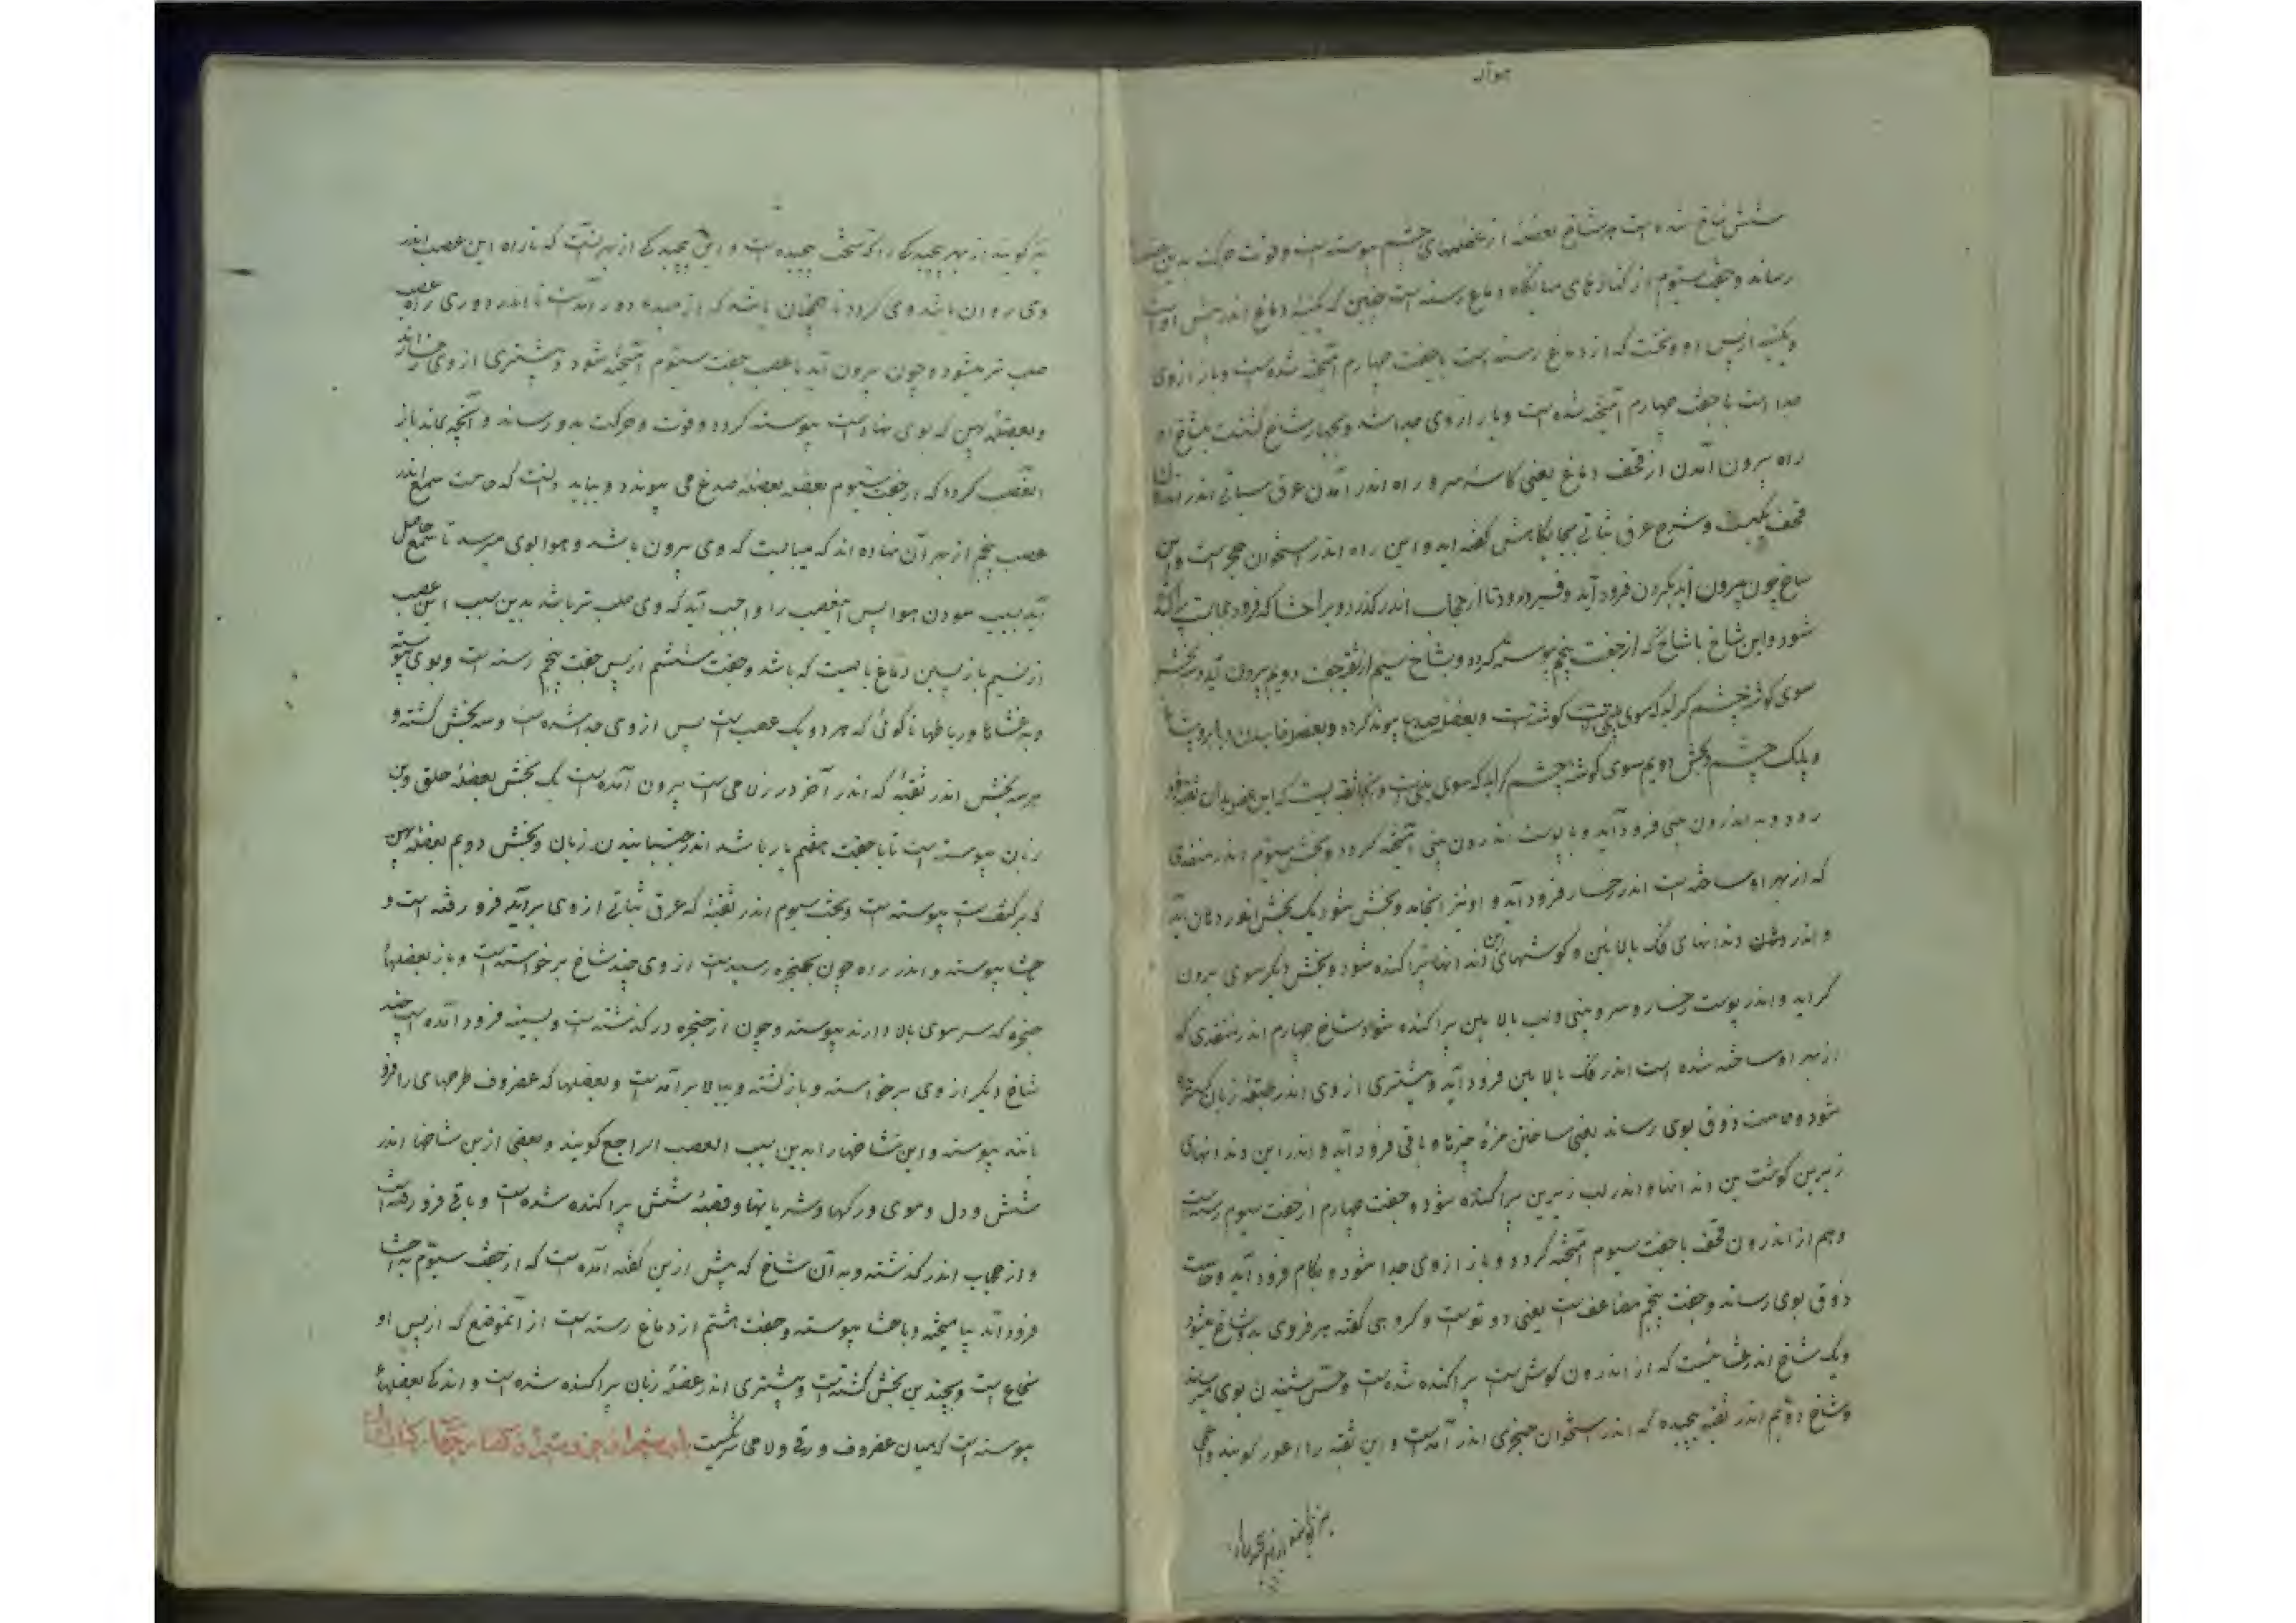 شش شاخ شده است هر شاخ بعضلهٔ از عضلهای چشم پیوسته است و قوت حرکت بدین
رساند و جفت سیّوم از کنارهای میانگاه دماغ رسته است چنین که یکنیمهٔ دماغ اندر پیش اوست
و یکنیمه از پس او و نخست که از دماغ رسته است با جفت چهارم آمیخته شده است و باز از وی
جدا است با جفت چهارم آمیخته شده است و باز از وی جدا شده و بچهار شاخ گشتست یکشاخ از
راه بیرون آمدن از قحف دماغ یعنی کاسهٔ سر و راه اندر آمدن عرق سباتی اندر
قحف یکیست و شرح عرق سباتی بجایگاهش گفته آید و این راه اندر استخوان حجری است و این
شاخ چون بیرون آید بگردن فرود آید و فرو رود تا از حجاب اندر گذرد و براحشا که فرود حجابست پراکنده
شود و این شاخ با شاخی که از جفت پنجم پیوسته گردد و شاخ سیم از ثقبه جفت دویم بیرون آید و سه بخش
سوی گوشهٔ چشم گراید که سوی گوشست و بعضلهٔ صدغ پیوند گردد و بعضلهٔ خاییدن و ابرو و پیشانی
و پلک چشم و بخش دویم سوی گوشهٔ چشم گراید که سوی بینی است و بدان ثقبه فرو
رود و به اندرون بینی فرود آید و با پوست اندرون بینی آمیخته گردد و بخش سیّوم اندر منفذی
که از بهر او ساخته است اندر رخسار فرود آید و او نیز آنجا بدو بخش شود یک بخش اندر دهان آید
و اندر دهان دندانهای فک بالائین و گوشتهای بن دندانها پراکنده شود و بخش دیگر سوی بیرون
گراید و اندر پوست رخسار و سر و بینی و لب بالائین پراکنده شود و شاخ چهارم اندر منفذی که
از بهر او ساخته شده است اندر فک بالائین فرود آید و بیشتری از وی اندر طبقهٔ زبان گسترده
شود و حاست ذوق بوی رساند یعنی ساختن مزهٔ چیزها و باقی فرود آید و اندر این دندانهای
زیرین گوشت بن دندانها و اندر لب زیرین پراکنده شود و جفت چهارم از جفت سیوم رسته است
و هم از اندرون قحف با جفت سیوم آمیخته گردد و باز از وی جدا شود و بکام فرود آید و حاست
ذوق بوی رساند و جفت پنجم مضاعف است یعنی دو توست و گروهی گفته هر فردی بدو شاخ میشود
و یک شاخ اندر غشائیست که از اندرون گوش است پراکنده شده است و حس شنیدن بوی میرساند
و شاخ دویم اندر ثقبه پیچیده که اندر استخوان حجری اندر آمدست و این ثقبه را اعور گویند و اعمی
نیز گویند از بهر پیچیدگی راکه سخت پیچیده است و این پیچیدگی از بهر آنست که تا راه این عصب اندر
وی روان باشد وی گردد تا همچنان باشد که از مبداء دور آمدست تا اندر دوری راه عصب
صلب تر میشود و چون بیرون آید با عصب جفت سیّوم آمیخته شود و بیشتری از وی
و بعضلهٔ پهن که بوی نهاده است پیوسته گردد و قوت و حرکت بدو رساند و آنچه بماند باز
العصب گردد که از جفت سیوم بعضهٔ بعضلهٔ صدغ می پیوندد و بباید دانست که حاست سمع اندر
عصب پنجم از بهر آن نهاده اند که میبایست که وی بیرون باشد و هوا بوی میرسد تا سمع حاصل
آید بسبب سودن هوا پس آن عصب را واجب آید که وی صلب تر باشد بدین سبب این عصب
از قسم بازپسین دماغ بایست که باشد و جفت ششم از پس جفت پنجم رسته است و بوی پیوسته
و به غشاها و رباطها تا گوئی که هر دو یک عصب است پس از وی جدا شده است و سه بخش گشته و
هر سه بخش اندر ثقبهٔ که اندر آخر درز لامی است بیرون آمده است یک بخش بعضلهٔ حلق و بن
زبان پیوسته است تا با جفت هفتم یار باشد اندر جنبانیدن زبان و بخش دویم بعضلهٔ پهن
که بر کتف است پیوسته است و بخش سیوم اندر ثقبهٔ که عرق سباتی از وی برآید فرو رفته است و
باحشا پیوسته و اندر راه چون بحنجره رسیدست از وی چند شاخ برخواسته است و باز بعضلهای
حنجره که سر سوی بالا دارند پیوسته و چون از حنجره در گذشته است و بسینه فرود آمده است چند
شاخ دیگر از وی برخواسته و بازگشته و ببالا برآمدست و بعضلها که غضروف طرجهاری را فرو
باشد پیوسته و این شاخها را بدین سبب العصب الراجع گویند و بعضی از این شاخها اندر
شش و دل و موی و رگها و شریانها و قصبهٔ شش پراکنده شده است و باقی فرو رفته است
و از حجاب اندر گذشته و به آن شاخ که پیش ازین گفته آمده است که از جفت سیّوم به احشا
فرود آمد بیامیخته و باحشا پیوسته و جفت هفتم از دماغ رسته است از آنموضع که از پس او
نخاع است و بچندین بخش گشته است و بیشتری اندر عضلهٔ زبان پراکنده شده است و اندکی بعضلهای
پیوسته است که میان غضروف ورقی و لامی شرکیست